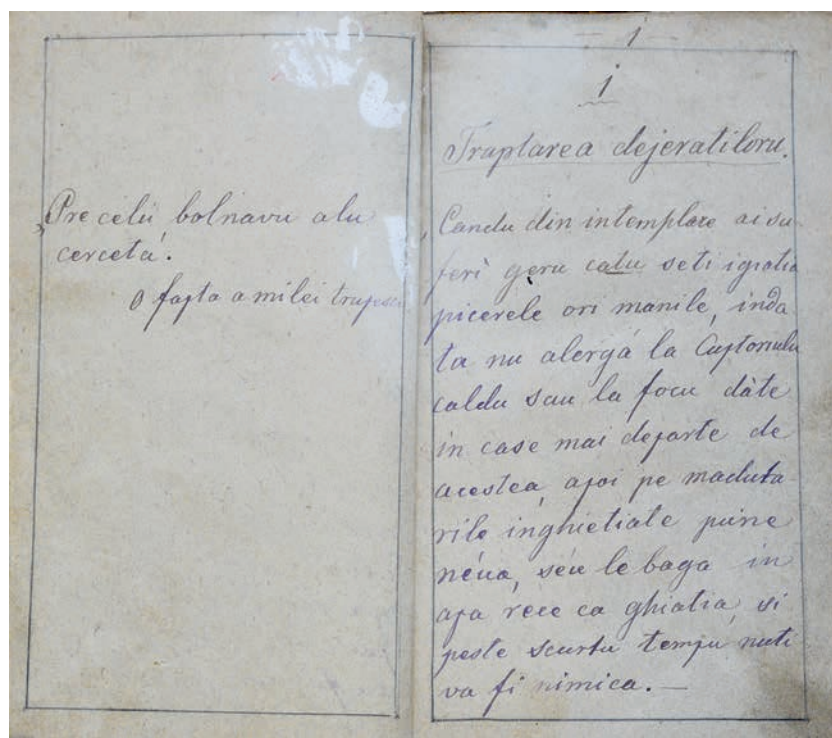 „Pre celu bolnavu alu
cercetá.
O fapta a milei trupesci
1
1
Traptarea dejeratiloru.
Candu din intemplare ai su-
feri geru catu seti igiatia
picerele ori manile, inda
ta nu alergá la Cuptoriulu
caldu sau la focu dàte
in case mai departe de
acestea, apoi pe madula-
rile inghietiate pune
néua, séu le baga in
apa rece ca ghiatia, si
peste scurtu tempu nuti
va fi nimica. —